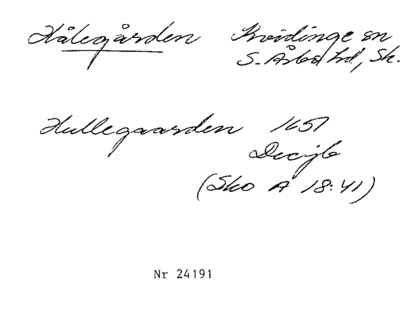 Hålegården Kvidinge sn
S. Åsbo hd, Sk.
Hullegaarden 1651
Decjb
(Sko A 18:41)
Nr 24191